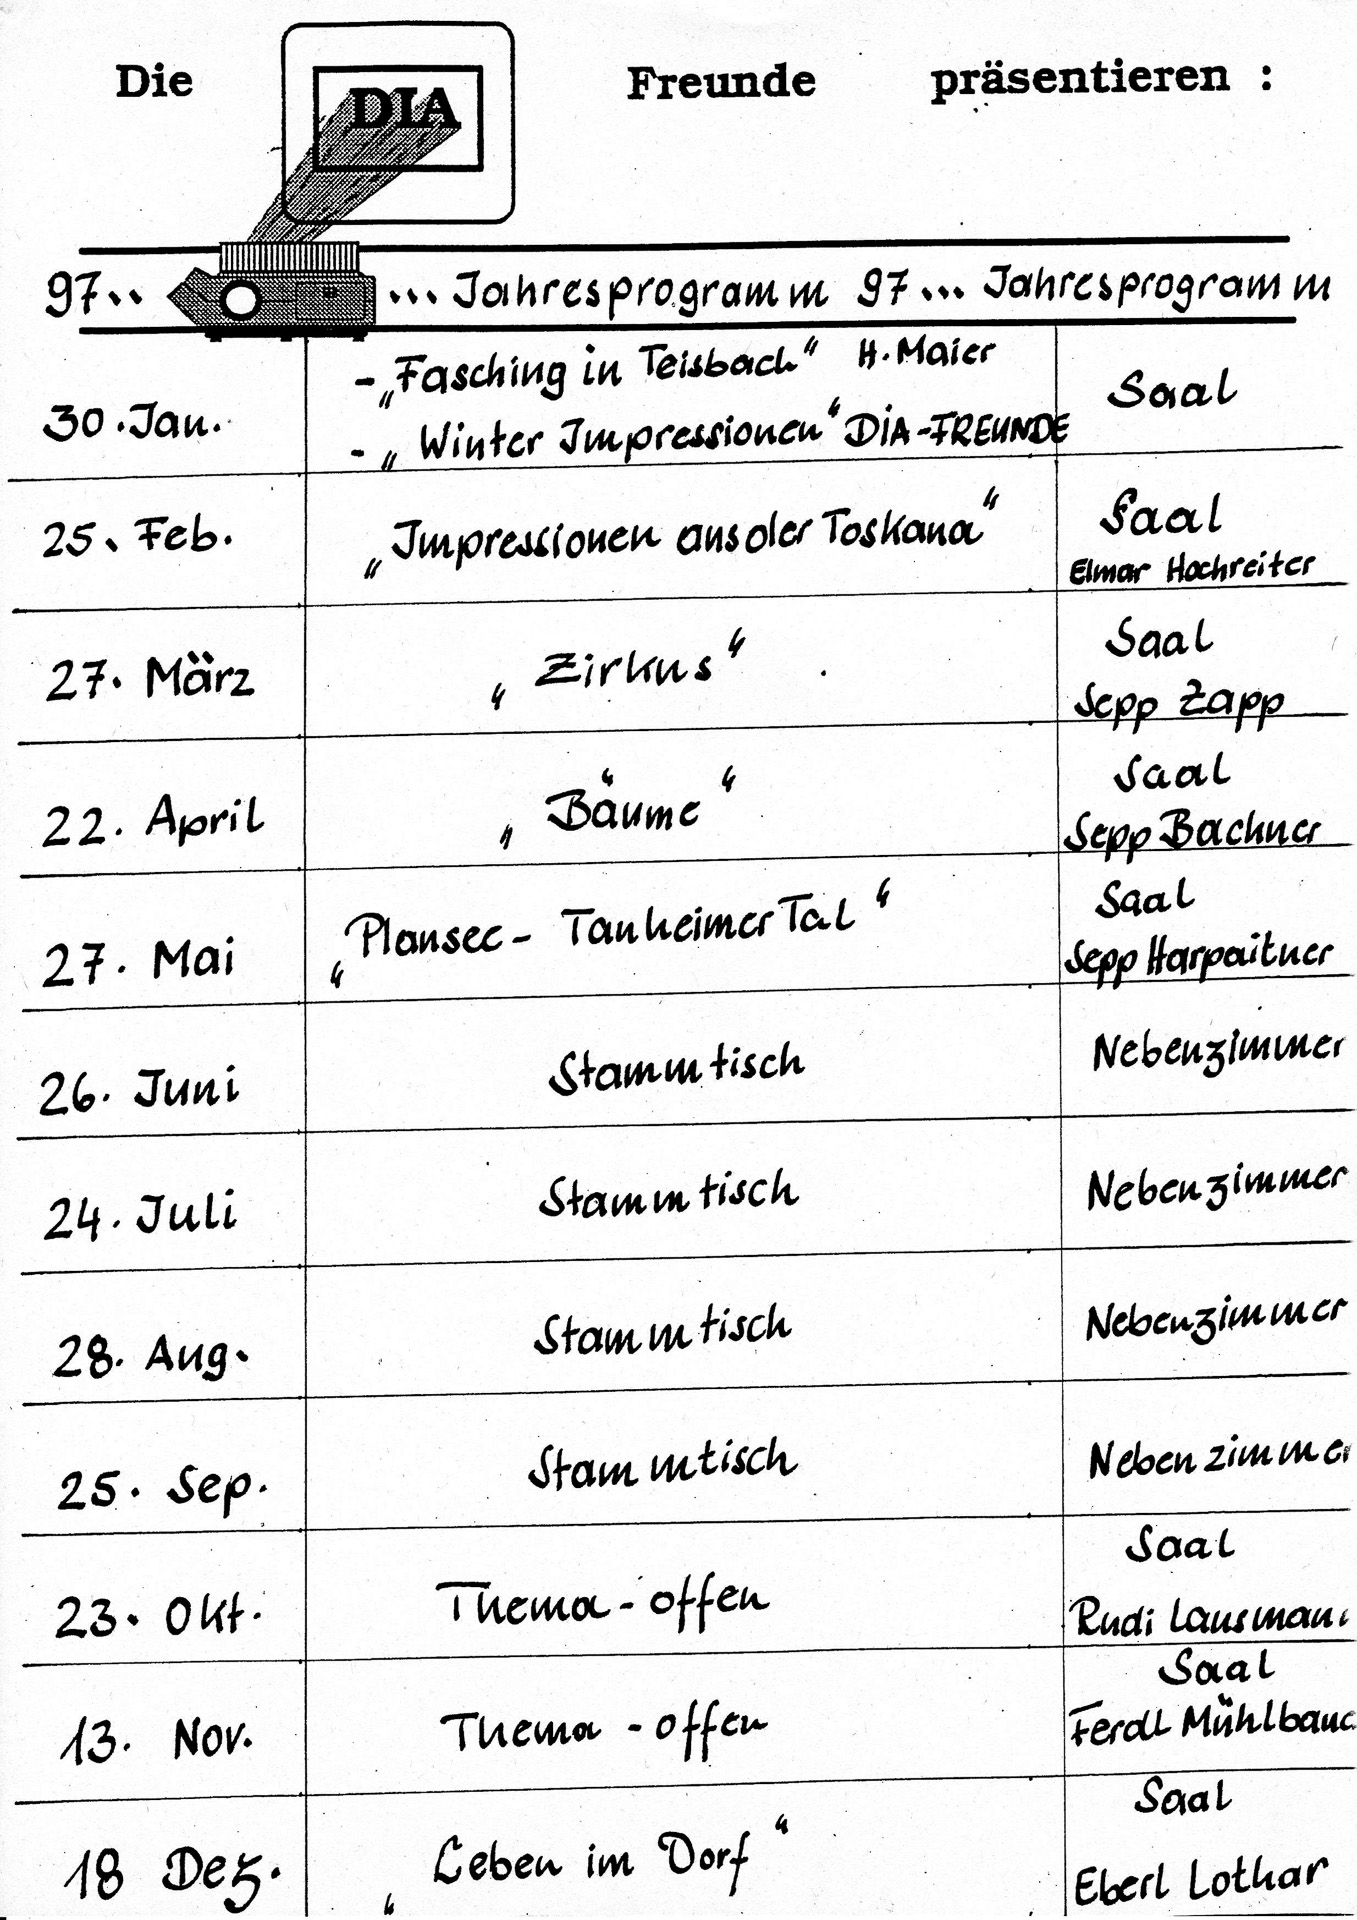 Die DIA Freunde präsentieren :
97.. ... Jahresprogramm 97... Jahresprogramm
- „Fasching in Teisbach“ H. Maier
30. Jan. Saal
- „Winter Impressionen“ DIA-FREUNDE
25. Feb. „Impressionen aus der Toskana“ Saal
Elmar Hochreiter
27. März „Zirkus“ Saal
Sepp Zapp
22. April „Bäume“ Saal
Sepp Bachner
27. Mai „Plansee - Tanheimer Tal“ Saal
Sepp Harpaitner
26. Juni Stammtisch Nebenzimmer
24. Juli Stammtisch Nebenzimmer
28. Aug. Stammtisch Nebenzimmer
25. Sep. Stammtisch Nebenzimmer
23. Okt. Thema - offen Saal
Rudi Lausmann
13. Nov. Thema - offen Saal
Ferdl Mühlbaue
18 Dez. „Leben im Dorf“ Saal
Eberl Lothar